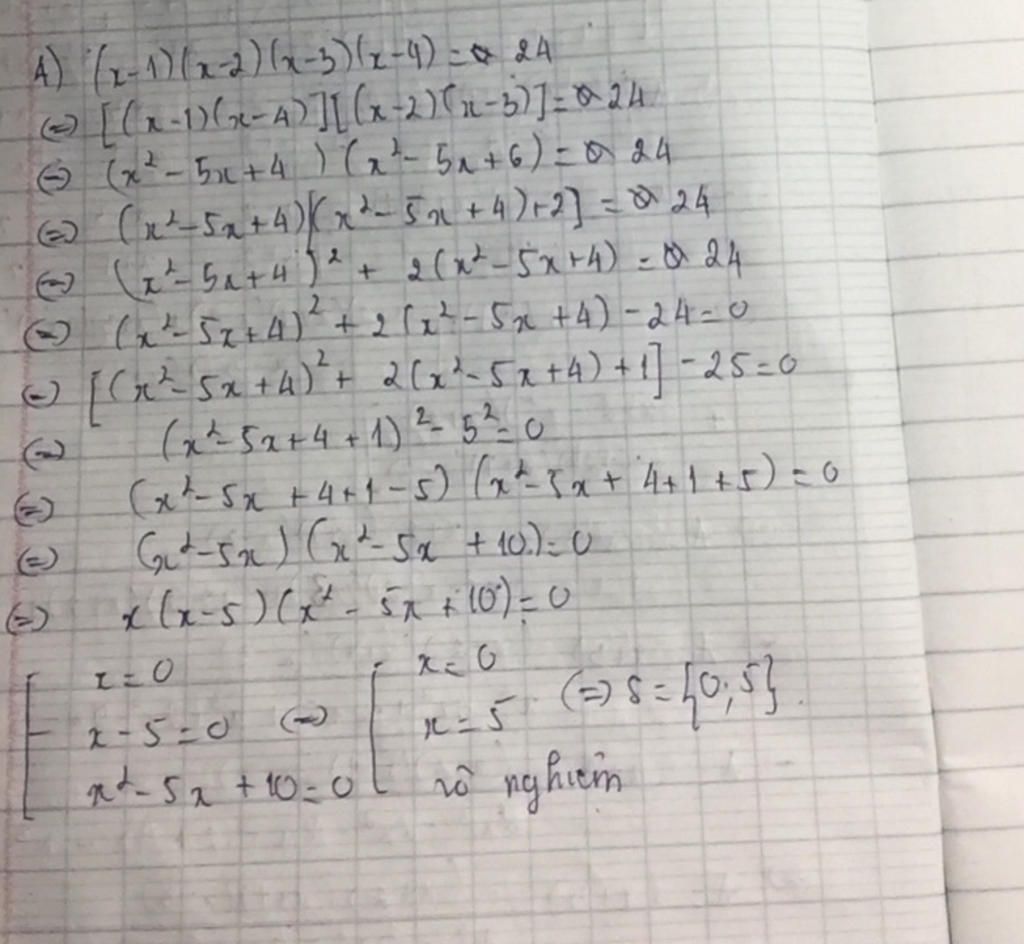 A) (x-1)(x-2)(x-3)(x-4) = 24
(=) [(x-1)(x-4)][(x-2)(x-3)] = 24
(=) (x² - 5x + 4) (x² - 5x + 6) = 24
(=) (x² - 5x + 4)[(x² - 5x + 4) + 2] = 24
(=) (x² - 5x + 4)² + 2(x² - 5x + 4) = 24
(=) (x² - 5x + 4)² + 2(x² - 5x + 4) - 24 = 0
(=) [(x² - 5x + 4)² + 2(x² - 5x + 4) + 1] - 25 = 0
(=) (x² - 5x + 4 + 1)² - 5² = 0
(=) (x² - 5x + 4 + 1 - 5) (x² - 5x + 4 + 1 + 5) = 0
(=) (x² - 5x) (x² - 5x + 10) = 0
(=) x (x - 5) (x² - 5x + 10) = 0
[ x = 0 [ x = 0
x - 5 = 0 (=) x = 5 (=) S = {0; 5}.
x² - 5x + 10 = 0 vô nghiệm